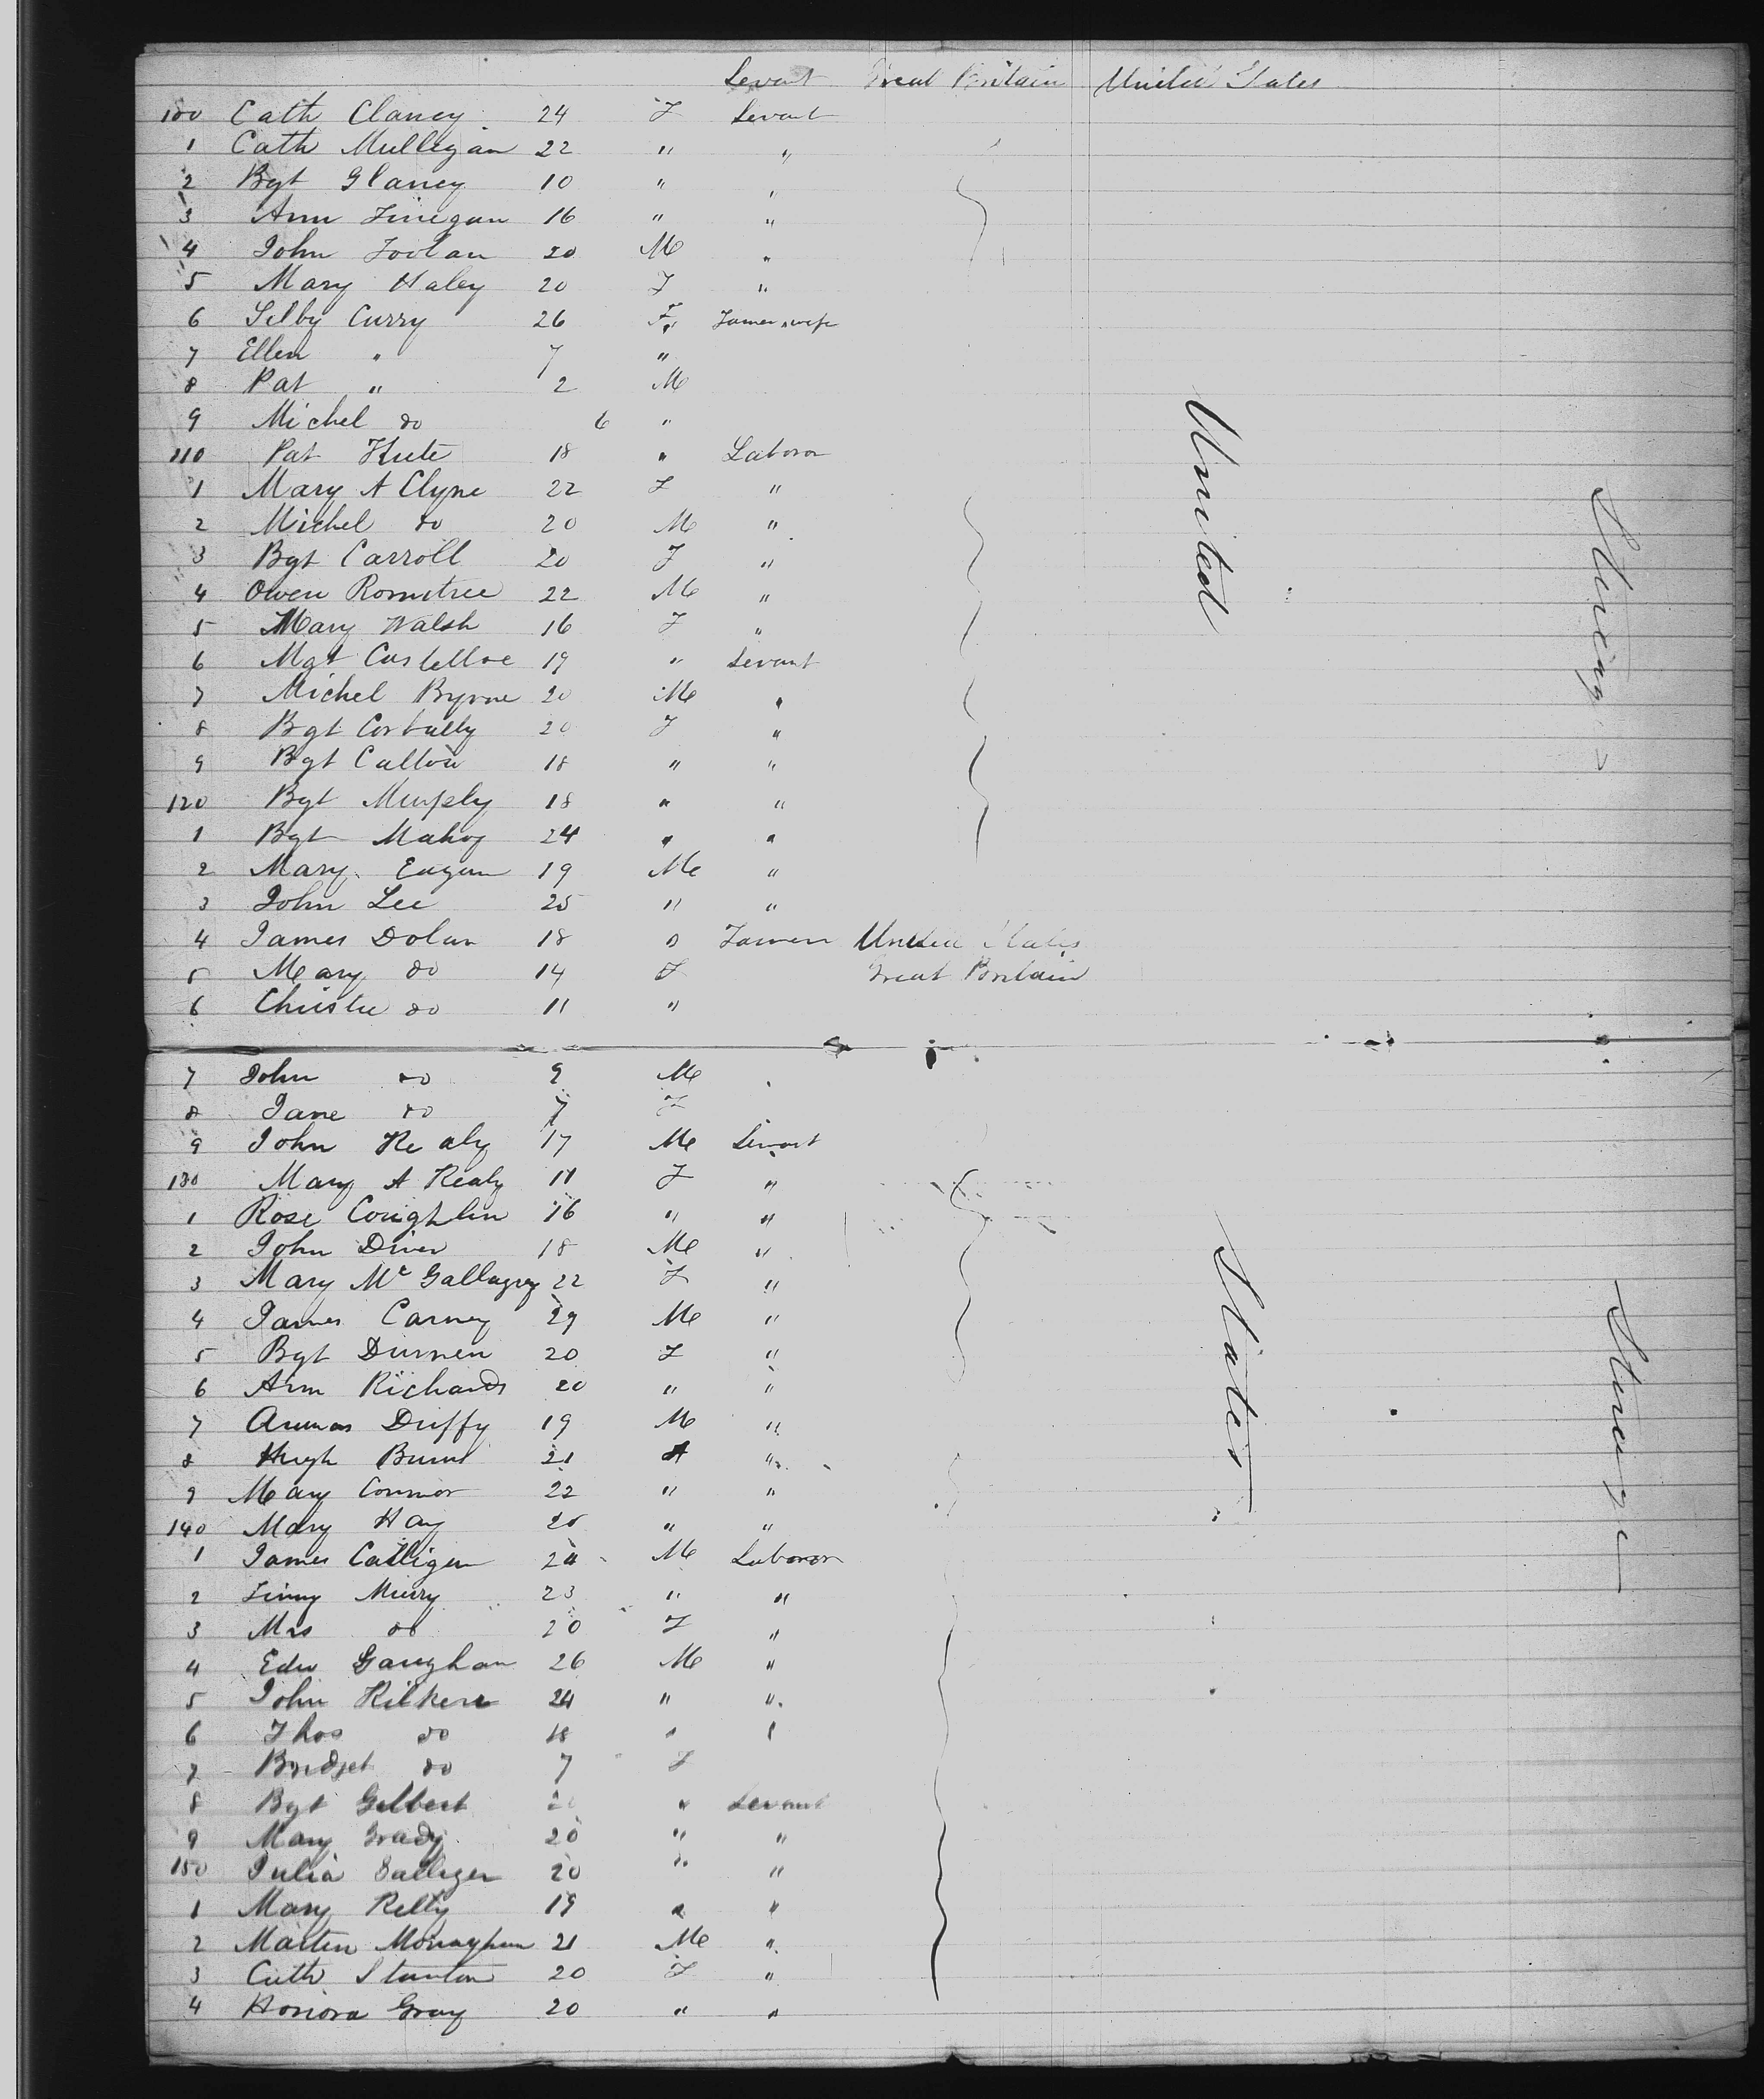 Servant Great Britain United States
100 Cath Clancy 24 F Servant
1 Cath Mulligan 22 " "
2 Bgt Glancy 10 " "
3 Ann Finegan 16 " "
4 John Toolan 20 M "
5 Mary Haley 20 F "
6 Selby Curry 26 F Farmers wife
7 Ellen " 7 "
8 Pat " 2 M
9 Michel do 6 "
110 Pat 18 " Labor
1 Mary A Clyne 22 F "
2 Michel do 20 M "
3 Bgt Carroll 20 F "
4 Owen Rowntree 22 M "
5 Mary Walsh 16 F "
6 Mgt Castelloe 19 " Servant
7 Michel Byrne 20 M "
8 Bgt Corbally 20 F "
9 Bgt 18 " "
120 Bgt Murphy 18 " "
1 Bgt Mahoy 24 " "
2 Mary Eagan 19 M "
3 John Lee 25 " "
4 James Dolan 18 " Farmer United States
5 Mary do 14 F Great Britain
6 Christie do 11 "
7 John do 9 M
8 Jane do 7 F
9 John Healy 17 M Servant
130 Mary A Healy 11 F "
1 Rose Coughlin 16 " "
2 John Diver 18 M "
3 Mary Mc 22 F "
4 James Carney 29 M "
5 Bgt Durnen 20 F "
6 Ann Richards 20 " "
7 Duffy 19 M "
8 Hugh Burns 21 "
9 Mary Connor 22 " "
140 Mary Hay " "
1 James 24 M Laboror
2 Murry 23 " "
3 Mrs do 20 F "
4 Edw Gaughan 26 M "
5 John Kilkerr 24 " "
6 Thos do 18 " "
7 Bridget do 7 F
8 Bgt Gilbert " Servant
9 Mary Grady 20 " "
150 Julia 20 " "
1 Mary Kelly 19 " "
2 Martin Monaghan 21 M "
3 Cath Stanton 20 F "
4 Honora Gray 20 " "
United
States
Steerage
Steerage